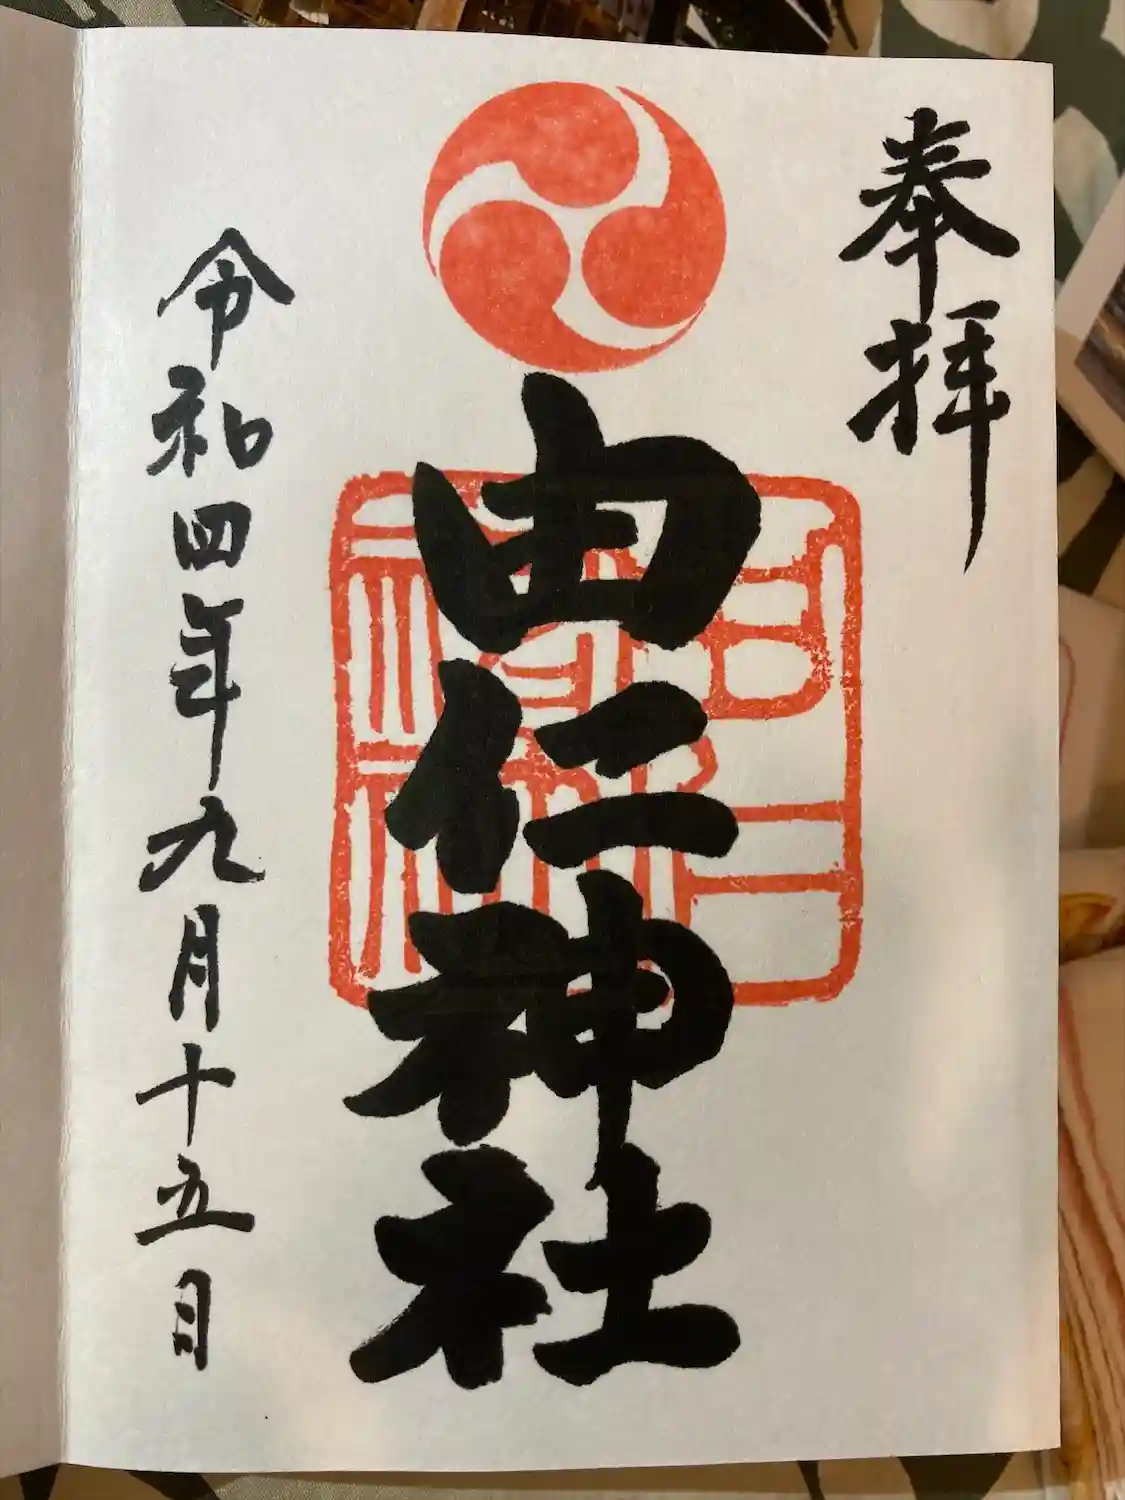 奉拝
由仁神社
令和四年九月十五日